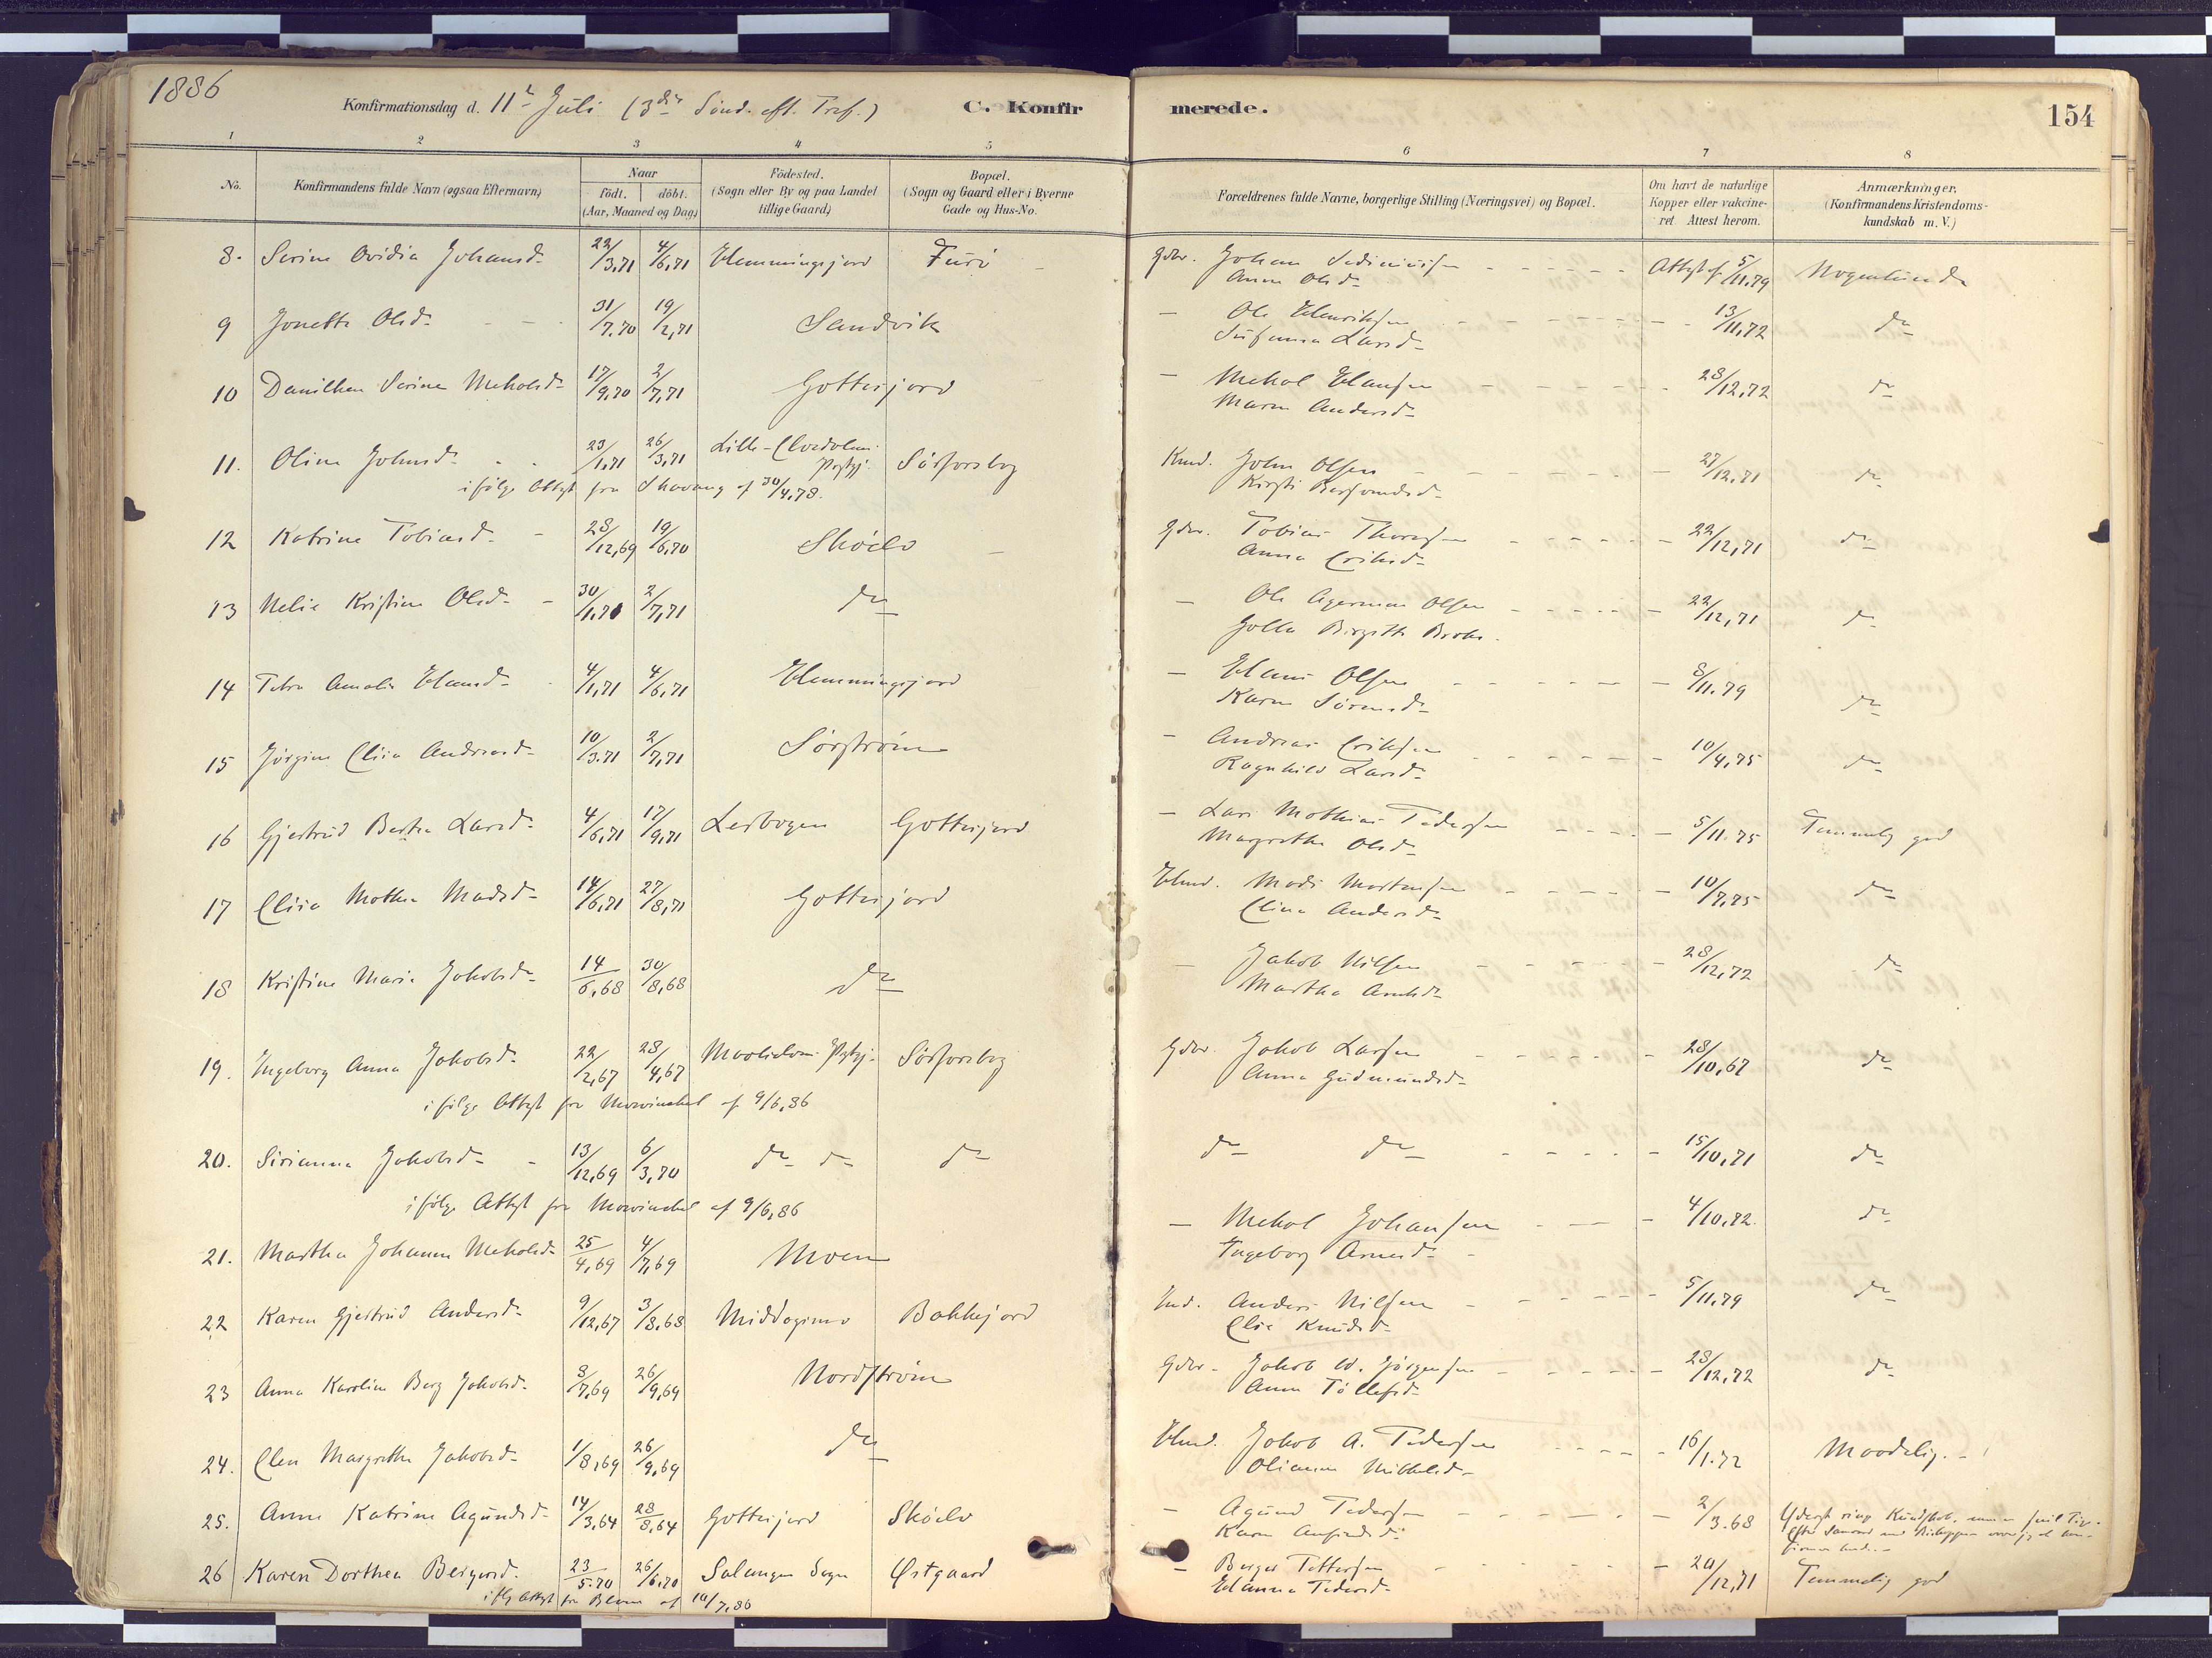 1886
Konfirmationsdag d. 11te Juli (3die Sönd. eft. Tref.)
C. Konfirmerede.
154
1 2 3 4 5 6 7 8
No.
Konfirmandens fulde Navn (ogsaa Efternavn)
Naar
födt. döbt.
(Aar, Maaned og Dag)
Födested.
(Sogn eller By og paa Landet
tillige Gaard)
Bopæl.
(Sogn og Gaard eller i Byerne
Gade og Hus-No.
Forældrenes fulde Navne, borgerlige Stilling (Næringsvei) og Bopæl.
Om havt de naturlige
Kopper eller vakcine-
ret. Attest herom.
Anmærkninger.
(Konfirmandens Kristendoms-
kundskab m. V.)
8. Serine Ovidia Johansd. 22/3,71 4/6,71 Hemmingsjord Furö Gdbr. Johan Attest af 5/11.79 Nogenlunde
Anna Olsd.
9 Jonetta Olsd. 31/7.70 19/2,71 Sandvik – Ole Henriksen 13/11,72 do
Susanna Larsd.
10 Danilken Serine Mekolsd. 17/9,70 2/7,71 Gottesjord – Mekal Hansen 28/12,72 do
Maren Andersd.
11. Oline Johnsd. 23/1,71 26/3,71 Lille- Prgtj. Sörforsbog John Olsen 27/12,71 do
ifölge Attest fra af 30/4,78. Kirsti
12 Katrine Tobiasd. 28/12,69 19/6,70 Sköelv Gdbr. Tobias 22/12,71 do
Anna Eriksd.
13 Nelie Kristine Olsd. 30/1,71 2/7,71 do – Ole Agerman Olsen 22/12,71 do
Birgitte
14 Amalie Hansd. 4/1,71 4/6,71 Hemmingsjord – Hans Olsen 8/11.79 do
Karen Sörensd.
15 Jörgine Elisa Andreasd. 10/3.71 2/7,71 Sörströmen – Andreas Eriksen 10/4,75 do
Ragnhild Larsd.
16 Gjertrud Berthe Larsd. 4/6,71 17/9,71 Lerbogen Gottesjord – Lars Mathias Pedersen 5/11.75 Temmelig god
Margrethe Olsd.
17 Elisa Mathea Madsd. 14/6,71 27/8,71 Gottesjord Hmd. Mads Mortensen 10/7,75 do
Elina Andersd.
18 Kristine Marie Jakobsd. 14/6,68 30/8,68 do – Jakob Nilsen 28/12,72 do
Martha
19. Ingeborg Anna Jakobsd. 22/2,67 28/4,67 Maalselven Prgtj. Sörforsbog Gdbr. Jakob Larsen 28/10,67 do
ifölge Attest fra Mowinckel af 9/6,86 Anna Gudmundsd.
20. Sirianna Jakobsd. 13/12,69 6/3,70 do do do do do 15/10,71 do
ifölge Attest fra Mowinckel af 9/6,86
21. Martha Johanna Mekolsd. 25/4,69 4/7,69 Moen – Mekal Johansen 4/10,72. do
Ingeborg Arnesd.
22 Karen Gjertrud Andersd. 9/12,67 3/8,68 Bakkejord Ind. Anders Nilsen 5/11.79 do
Elie Knudsd.
23 Anna Karoline Berg Jakobsd. 3/7,69 26/9,69 Nordströmen Gdbr. Jakob W. Jörgensen 28/12,72 do
Anna Tollefsd.
24. Elen Margrethe Jakobsd. 1/8,69 26/9,69 do Hmd. Jakob A. Pedersen 16/1.72 Maadelig.
Olianna Mikkelsd.
25. Anne Katrine Agundsd. 14/3,64 28/8,64 Gottesjord Sköelv – Agund Pedersen 2/3.68 Yderst ringe Kundskab,
Karen
26 Karen Dorthea Beigersd. 23/5.70 26/6,70 Salangen Sogn Østgaard – 20/12,71 Temmelig god
iflg Attest fra af 10/7,86 Hanna Pedersd.